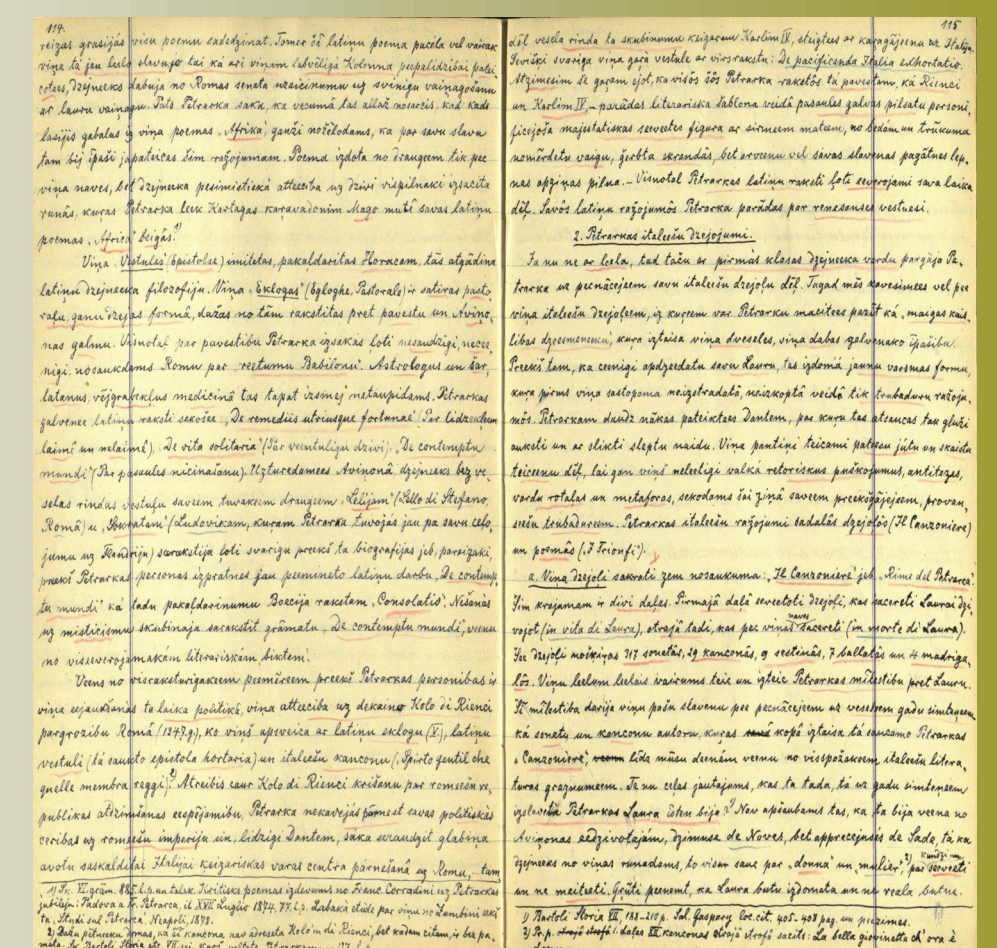 114.
reizas grasijás visu poemu sadedzinat. Tomer šī latiņu poema pacēla vel vairak
viņa tá jau leelo slavu, tai ká ari viņam labvēligá Kolonna peepalidzibai patei
cotees, dzejneeks dabuja no Romas senata uzaicinumu uz svinigu vaiņagošanu
ar lauru vaiņagu. Pats Petrarka saka, ka vecumá tas allaž nosarcis, kad kads
lasijis gabalus iz viņa poemas „Afrika", gauži nožēlodams, ka par savu slavu
tam bij īpaši japateicas šim ražojumam. Poema izdota no draugeem tik pec
viņa naves, bet dzejneeka pesimistiská atteeciba uz dzivi vispilnaki izsacita
runás, kuras Petrarka leek Kartagas karavadonim Mago mutē savas latiņu
poemas „Africa" beigás.¹)
Viņa „Vēstules" (Epistolae) imiletas, pakaldaritas Horacam, tás atgádina
latiņu dzejneeka filozofiju. Viņa „Eklogas" (Egloghe, Pastorale) ir satiras pasto
raļu, ganu dzejas formá, dažas no tám rakstitas pret pavestu un Aviņo,
nas galmu. Visnotaļ par pavestibu Petrarka izsakas ļoti nesaudzigi, necee
nigi, nosaukdams Romu par „reetumu Babilonu". Astrologus un šar,
latanus, vējgrabekļus medicinā tas tapat uzsmej netaupidams. Petrarkas
galvenee latiņu raksti sekošee: „De remediis utriusque fortunae" (Par lidzekļeem
laimē un nelaimē), „De vita solitaria" (Par veentuligu dzivi), „De contemptu
mundi" (Par pasaules nicinašanu). Uzturedamees Aviņonā, dzejneeks bez ve
selas rindas vestuļu saveem tuvakeem draugeem „Lelijam" (Lello di Stefano,
Romā) u „Sokratam" (Ludovikam, kuram Petrarka tuvojás jau pa savu ceļo,
jumu uz Flandriju) sarakstija ļoti svarigu preekš ta biografijas jeb, pareizaki,
preekš Petrarkas personas izpratnes jau peemineto latiņu darbu „De contemp,
tu mundi" ká tadu pakaļdarinumu Boecija rakstam „Consolatis". Nešanás
uz misticismu skubinaja sarakstit grámatu „De contemptu mundi", veenu
no visseverojamakám literariskám biktem.
Veens no visraksturigakeem peemēreem preekš Petrarkas personibas ir
viņa eejaukšanás ta laika politikā, viņa atteeciba uz dekaino Kolo di Rienci
pargrozibu Romā (1347.g), ko viņš apsveica ar latiņu eklogu (V), latiņu
vestuli (tá saukto epistola hortaria) un italeešu kanconu („Spirto gentil che
quelle membra reggi").²) Atreibis caur Kolo di Rienci krišanu par romeešu re,
publikas atdzimšanas eespējamibu, Petrarka nekavejás pamest savas politiskás
ceribas uz romeešu imperiju un, lidzigi Dantem, sáka svaudzit glabina
avotu saskalditai Italijai keizariskas varas centra párnešaná uz Romu, – tam
1) Sk. VI. grám. 885 l.p. un talak. Kritisks poemas izdevums no Franc. Corradini uz Petrarkas
jubileju: Padova a Fr. Petrarca, il XVII Luglio 1874. 77. l.p. Labaká etude par viņu no Zumbini rakstá
tá, Studii sul Petrarca, Neapoli, 1878.
2) Dažu pētneeku domas, ka šī kancona nav adreseta Kolo'm di Rienci, bet kádam citam, ir bez pa,
115
dēļ vesela rinda ta skubinumu keizaram Karlim IV, steigtees ar karagájeenu uz Italiju.
Sevišķi svariga viņa gará vestule ar virsrakstu: De pacificanda Italia exhortatio.
Atzimēsim še garam ejot, ka visós šós Petrarka rakstós tá pavestam, ká Rienci
un Karlim IV, – parádas literariska šablona veidá pasaules galvas pilsatu personi,
ficejoša majestatiskas seeveetes figura ar sirmeem mateem, no bedám un trūkuma
nomērdetu vaigu, ģerbta skrandás, bet arveenu vel savas slavenas pagátnes lep,
nas apziņas pilna. – Visnotaļ Petrarkas latiņu raksti ļoti eeverojami sava laika
dēļ. Savós latiņu ražojumós Petrarka parádas par renesanses vestnesi.
2. Petrarkas italeešu dzejojumi.
Ja nu ne ar leela, tad taču ar pirmás klasas dzejneeka vardu pargája Pe,
trarka uz pecnácejeem savu italeešu dzejoļu dēļ. Tagad més pavesimees vel pee
viņa italeešu dzejoļeem, iz kureem var Petrarku maceitees pazit ká „maigas kais,
libas dzeesmeneeku, kura iztaisa viņa dveseles, viņa dabas galvenako īpašibu.
Preekš tam, ka ceenigi apdzeedatu savu Lauru, tas izdomá jaunu varsmas formu,
kura pirms viņa sastopama neizstradatá, neizkoptá veidá tik trubaduru ražoju,
mós. Petrarkam daudz nákas pateiktees Dantem, par kuru tas atsaucas tak gluži
auksti un ar slikti slēptu naidu. Viņa pantiņi teicami pateesu jūtu un skaistu
teiceenu dēļ, lai gan viņš neleetigi valká retoriskus puškojumus, antitezes,
vardu rotaļas un metaforas, sekodams šai ziņá saveem preekšgájejeem, provan,
seešu trubadureem. Petrarkas italeešu ražojumi sadalás dzejoļós (Il Canzoniere)
un poemás („I Trionfi").
a. Viņa dzejoļi sakrati zem nosaukuma: „Il Canzoniere" jeb „Rime del Petrarca".
Šim krajumam ir divi daļas. Pirmajá daļá eeveetoti dzejoļi, kas sacereti Laurai dzi,
vojot (in vita di Laura), otrajá tadi, kas pec viņas naves sacereti (in morte di Laura).
Šee dzejoļi aošķiras 317 sonetás, 29 kanconás, 9 sestinás, 7 ballatás un 4 madriga,
lós. Viņu leelum leelais vairums teic un izteic Petrarkas mīlestibu pret Lauru.
Šī mīlestiba darija viņu pašu slavenu pee pecnácejeem uz veseleem gadu simteņeem
ká sonetu un kanconu autoru, kuras kopá iztaisa tá saucamo Petrarkas
„Canzoniere", līdz mūsu deenám veenu no visspožakeem italeešu litera,
turas graznumeem. Te nu ceļas jautájums, kas ta tada, tá uz gadu simteneem
izslavetá Petrarkas Laura īsten bija?¹) Nav apšaubams tas, ka ta bija veena no
Aviņonas eedzivotajám, dzimuse de Noves, bet apprecejuses de Sade, tá ka
dzejneeks no viņas runadams, to visur sauc par „donna" un „mulier",²) kundzi un par seeveeti
un ne meiteti. Grūti peeņemt, ka Laura butu izdomata un ne reala butne.
1) Bartoli Storia VII, 188–210 p. Sal. Gaspary loc. cit. 405–408 pag. un peezimes.
2) Pr. p. I. daļas XII kanconas otrajá strofá sacits: La bella giovinetta ch' ora è